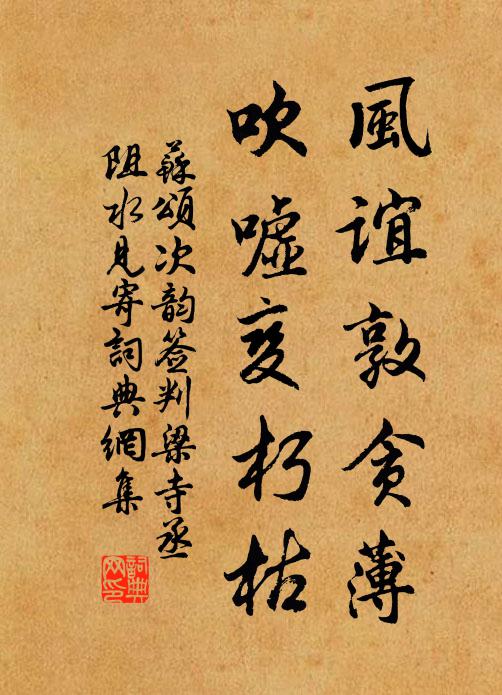 風誼敦貪薄
吹嘘变朽枯
蘇頌次韵签判梁寺丞
阻水見寄詞典網集
詞典网印